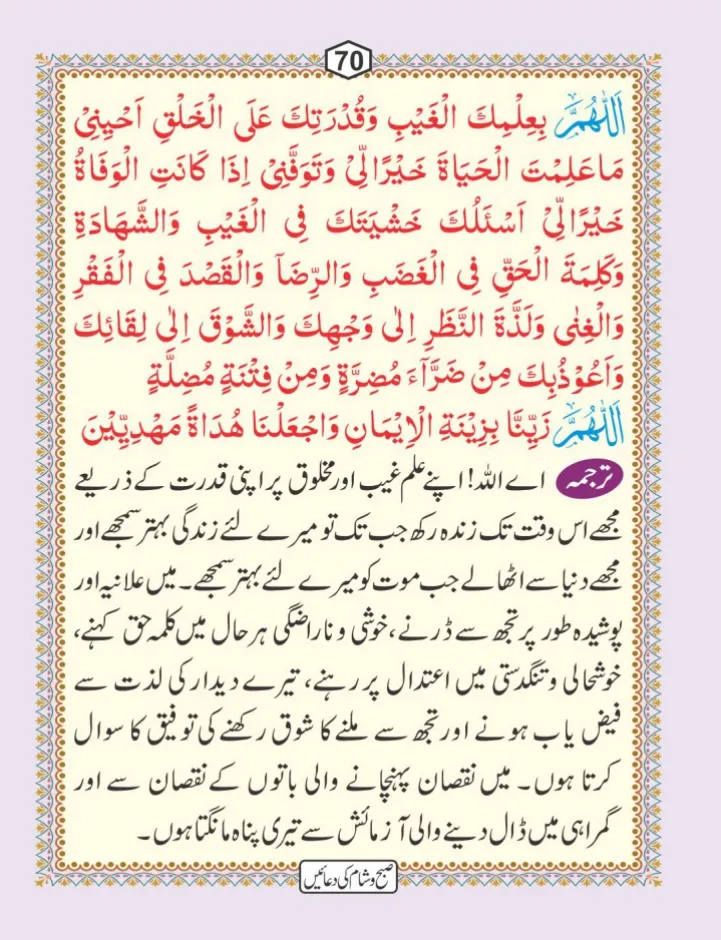 70
اَللّٰهُمَّ بِعِلْمِكَ الْغَيْبِ وَقُدْرَتِكَ عَلَى الْخَلْقِ اَحْيِنِيْ
مَاعَلِمْتَ الْحَيَاةَ خَيْرًالِّيْ وَتَوَفَّنِيْ اِذَا كَانَتِ الْوَفَاةُ
خَيْرًالِّيْ اَسْئَلُكَ خَشْيَتَكَ فِي الْغَيْبِ وَالشَّهَادَةِ
وَكَلِمَةَ الْحَقِّ فِي الْغَضَبِ وَالرِّضَآ وَالْقَصْدَ فِي الْفَقْرِ
وَالْغِنٰى وَلَذَّةَ النَّظَرِ اِلٰى وَجْهِكَ وَالشَّوْقَ اِلٰى لِقَائِكَ
وَاَعُوْذُبِكَ مِنْ ضَرَّآءَ مُضِرَّةٍ وَمِنْ فِتْنَةٍ مُضِلَّةٍ
اَللّٰهُمَّ زَيِّنَّا بِزِيْنَةِ الْاِيْمَانِ وَاجْعَلْنَا هُدَاةً مَهْدِيِّيْنَ
ترجمہ اے اللہ! اپنے علم غیب اور مخلوق پر اپنی قدرت کے ذریعے
مجھے اس وقت تک زندہ رکھ جب تک تو میرے لئے زندگی بہتر سمجھے اور
مجھے دنیا سے اٹھالے جب موت کو میرے لئے بہتر سمجھے۔ میں علانیہ اور
پوشیدہ طور پر تجھ سے ڈرنے، خوشی و ناراضگی ہر حال میں کلمہ حق کہنے،
خوشحالی و تنگدستی میں اعتدال پر رہنے، تیرے دیدار کی لذت سے
فیض یاب ہونے اور تجھ سے ملنے کا شوق رکھنے کی توفیق کا سوال
کرتا ہوں۔ میں نقصان پہنچانے والی باتوں کے نقصان سے اور
گمراہی میں ڈال دینے والی آزمائش سے تیری پناہ مانگتا ہوں۔
صبح و شام کی دعائیں